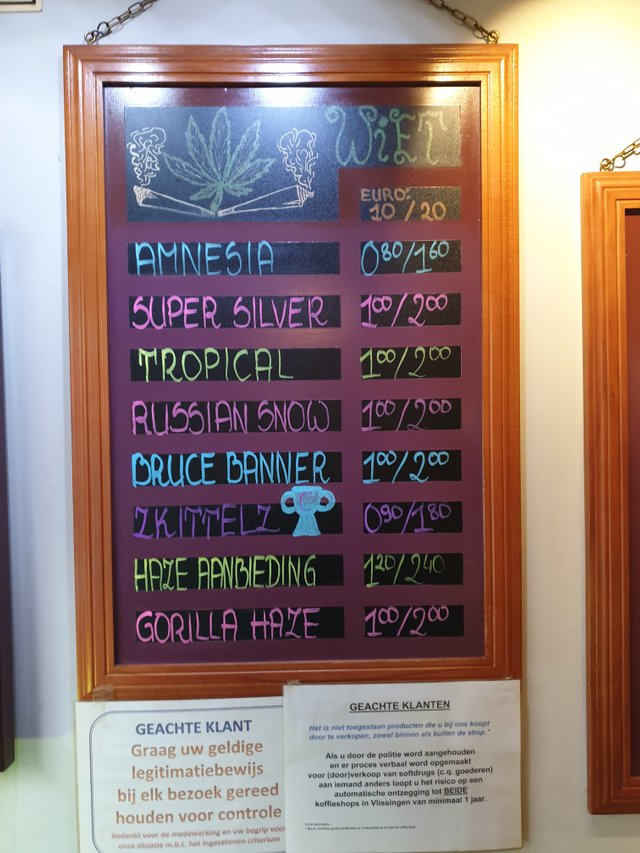 WiET
EURO:
10 / 20
AMNESIA 0⁸⁰/1⁶⁰
SUPER SILVER 1⁰⁰/2⁰⁰
TROPICAL 1⁰⁰/2⁰⁰
RUSSIAN SNOW 1⁰⁰/2⁰⁰
BRUCE BANNER 1⁰⁰/2⁰⁰
ZKITTELZ 0⁹⁰/1⁸⁰
HAZE AANBIEDING 1²⁰/2⁴⁰
GORILLA HAZE 1⁰⁰/2⁰⁰
GEACHTE KLANT
Graag uw geldige
legitimatiebewijs
bij elk bezoek gereed
houden voor controle
Bedankt voor de medewerking en uw begrip voor
onze situatie m.b.t. het ingezetenen criterium
GEACHTE KLANTEN
Het is niet toegestaan producten die u bij ons koopt
door te verkopen, zowel binnen als buiten de shop.*
Als u door de politie word aangehouden
en er proces verbaal word opgemaakt
voor (door)verkoop van softdrugs (c.q. goederen)
aan iemand anders loopt u het risico op een
automatische ontzegging tot BEIDE
koffieshops in Vlissingen van minimaal 1 jaar.